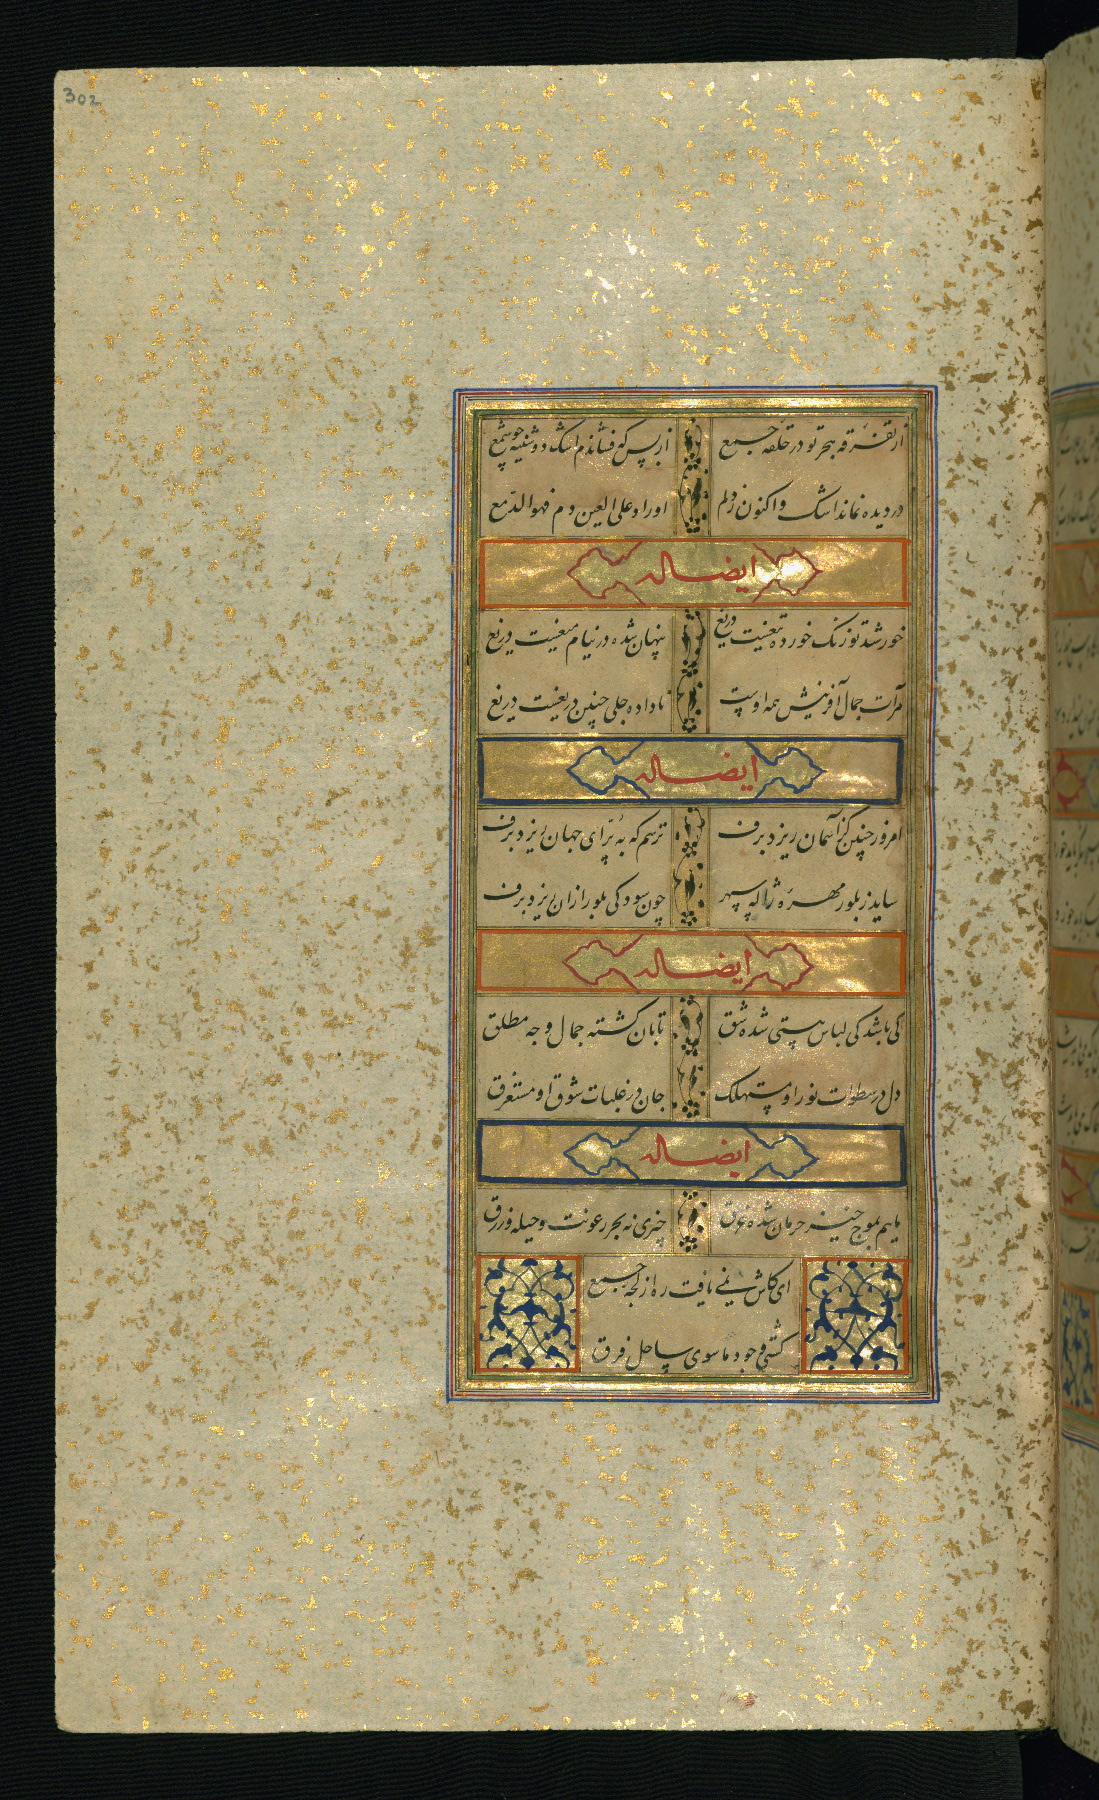 302
از تفرقه هجر تو در حلقه جمع از بس که فشاندم اشک دوشینه چو شمع
در دیده نماند اشک و اکنون ز دلم اوراد علی العین دم فهو الدمع
ایضا له
خورشید تو زنگ خورده تیغیست دریغ پنهان شده در نیام میغیست دریغ
مرآت جمال آفرینش همه اوست ناداده جلی چنین دریغیست دریغ
ایضا له
امروز چنین کز آسمان ریزد برف ترسم که به برای جهان ریزد برف
ساید ز بلور مهره ژاله سپهر چون سودکی بلور ازان ریزد برف
ایضا له
کی باشد کی لباس هستی شده شق تابان گشته جمال وجه مطلق
دل در سطوات نور او مستهلک جان در غلبات شوق او مستغرق
ایضا له
ماییم بموج حیز حرمان شده غرق چیزی نه بجز رعونت و حیله و زرق
ای کاش نمی یافت ره از لجه جمع
کشتی وجود ما سوی ساحل فرق